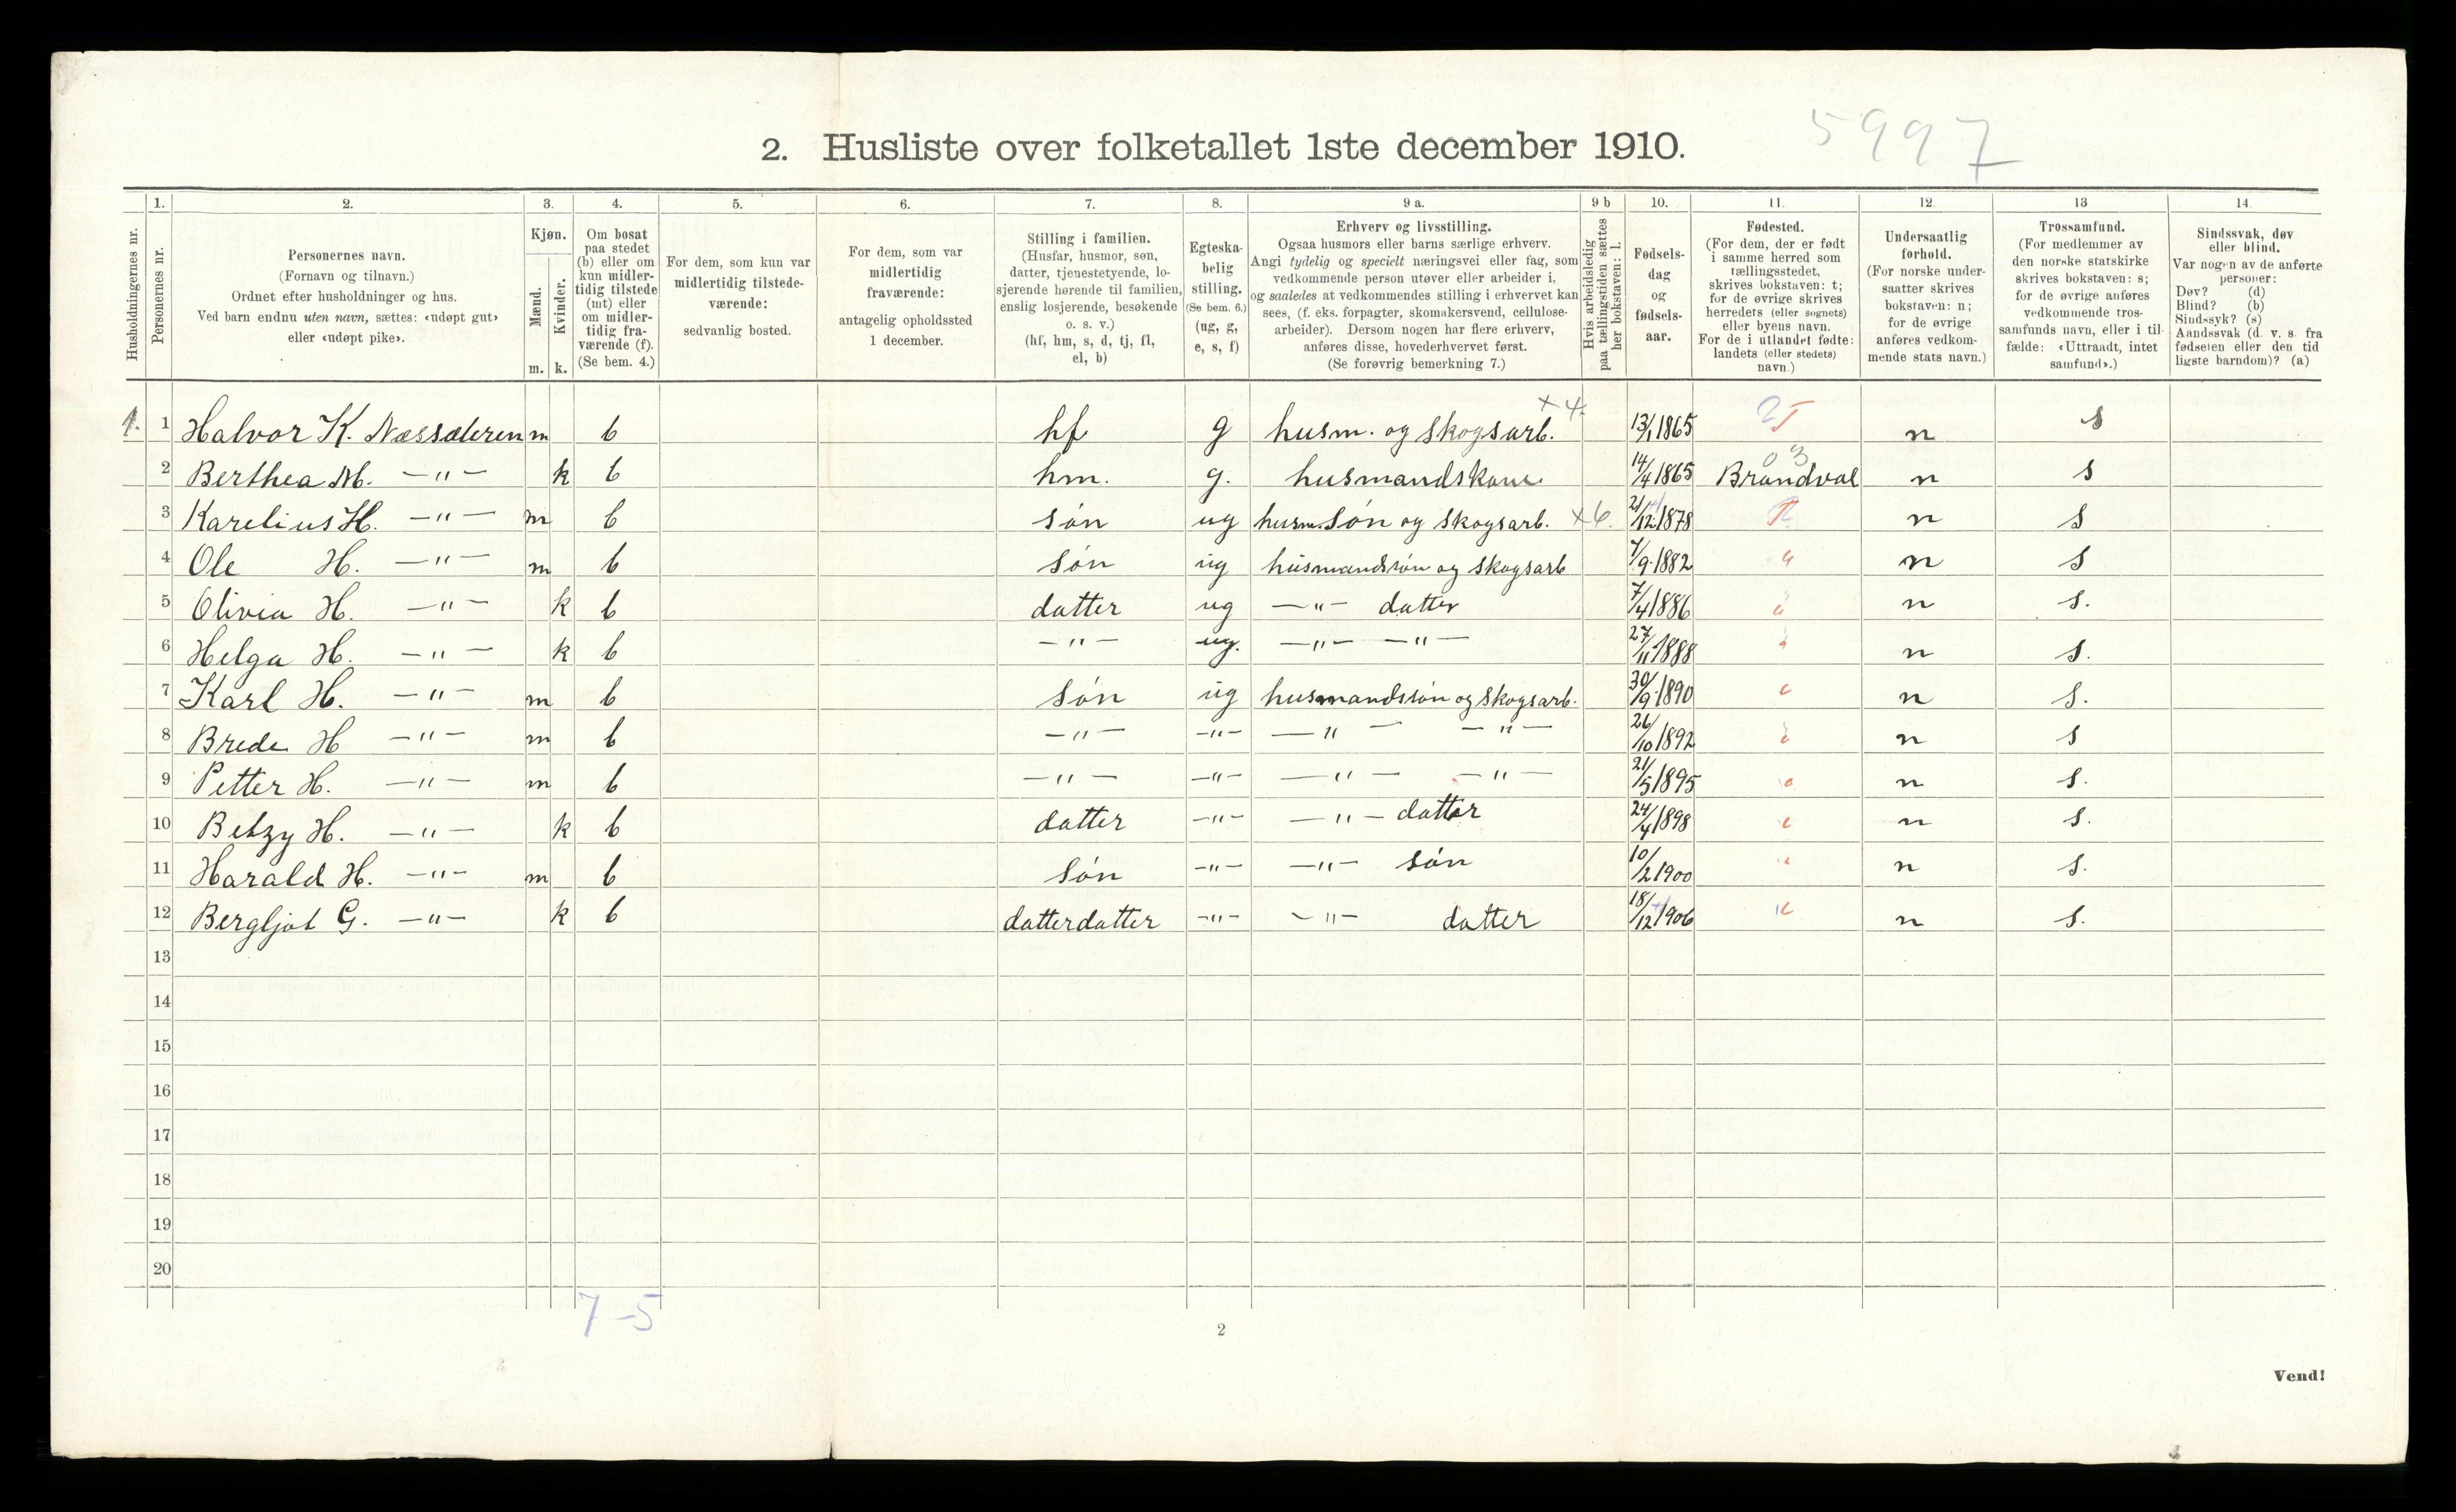 5997
2. Husliste over folketallet 1ste december 1910.
Husholdningernes nr.
1. Personernes nr.
2. Personernes navn. (Fornavn og tilnavn.) Ordnet efter husholdninger og hus. Ved barn endnu uten navn, sættes: «udøpt gut» eller «udøpt pike».
3. Kjøn. Mænd. m. Kvinder. k.
4. Om bosat paa stedet (b) eller om kun midlertidig tilstede (mt) eller om midlertidig fraværende (f). (Se bem. 4.)
5. For dem, som kun var midlertidig tilstedeværende: sedvanlig bosted.
6. For dem, som var midlertidig fraværende: antagelig opholdssted 1 december.
7. Stilling i familien. (Husfar, husmor, søn, datter, tjenestetyende, losjerende hørende til familien, enslig losjerende, besøkende o. s. v.) (hf, hm, s, d, tj, fl, el, b)
8. Egteskabelig stilling. (Se bem. 6.) (ug, g, e, s, f)
9 a. Erhverv og livsstilling. Ogsaa husmors eller barns særlige erhverv. Angi tydelig og specielt næringsvei eller fag, som vedkommende person utøver eller arbeider i, og saaledes at vedkommendes stilling i erhvervet kan sees, (f. eks. forpagter, skomakersvend, cellulosearbeider). Dersom nogen har flere erhverv, anføres disse, hovederhvervet først. (Se forøvrig bemerkning 7.)
9 b Hvis arbeidsledig paa tællingstiden sættes her bokstaven: l.
10. Fødselsdag og fødselsaar.
11. Fødested. (For dem, der er født i samme herred som tællingsstedet, skrives bokstaven: t; for de øvrige skrives herredets (eller sognets) eller byens navn. For de i utlandet fødte: landets (eller stedets) navn.)
12. Undersaatlig forhold. (For norske undersaatter skrives bokstaven: n; for de øvrige anføres vedkommende stats navn.)
13 Trossamfund. (For medlemmer av den norske statskirke skrives bokstaven: s; for de øvrige anføres vedkommende trossamfunds navn, eller i tilfælde: «Uttraadt, intet samfund».)
14 Sindssvak, døv eller blind. Var nogen av de anførte personer: Døv? (d) Blind? (b) Sindssyk? (s) Aandssvak (d. v. s. fra fødselen eller den tidligste barndom)? (a)
1. 1 Halvor K. Næssæteren m b hf g husm. og skogsarb. x 4 13/1 1865 T n s
2 Berthea M. —"— k b hm. g. husmandskone 14/4 1865 03 Brandval n s
3 Karelius H. —"— m b søn ug husm. søn og skogsarb. x 6. 21/12 1878 T n s
4 Ole H. —"— m b søn ug husmandssøn og skogsarb 7/9 1882 " n s
5 Olivia H. —"— k b datter ug —"— datter 7/4 1886 " n s.
6 Helga H. —"— k b —"— ug. —"— —"— 27/11 1888 " n s.
7 Karl H. —"— m b søn ug husmandssøn og skogsarb. 30/9 1890 " n s.
8 Brede H —"— m b —"— —"— —"— —"— 26/10 1892 " n s
9 Petter H. —"— m b —"— —"— —"— —"— 21/5 1895 " n s.
10 Betzy H. —"— k b datter —"— —"— datter 24/4 1898 " n s.
11 Harald H. —"— m b søn —"— —"— søn 10/2 1900 " n s.
12 Bergljot G. —"— k b datterdatter —"— —"— datter 18/12 1906 " n s.
13
14
15
16
17
18
19
20
7-5
2
Vend!